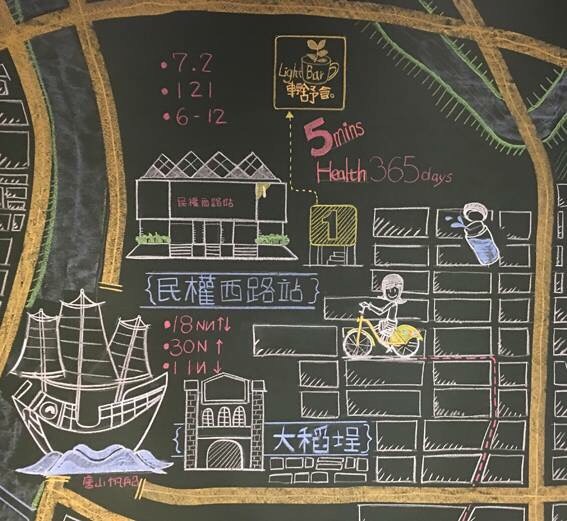 • 7.2
• 121
• 6-12
Light Bar
5mins
Health 365days
民權西路站
1
民權西路站
• 30N ↑
• 11N ↓
大稻埕
唐山帆船